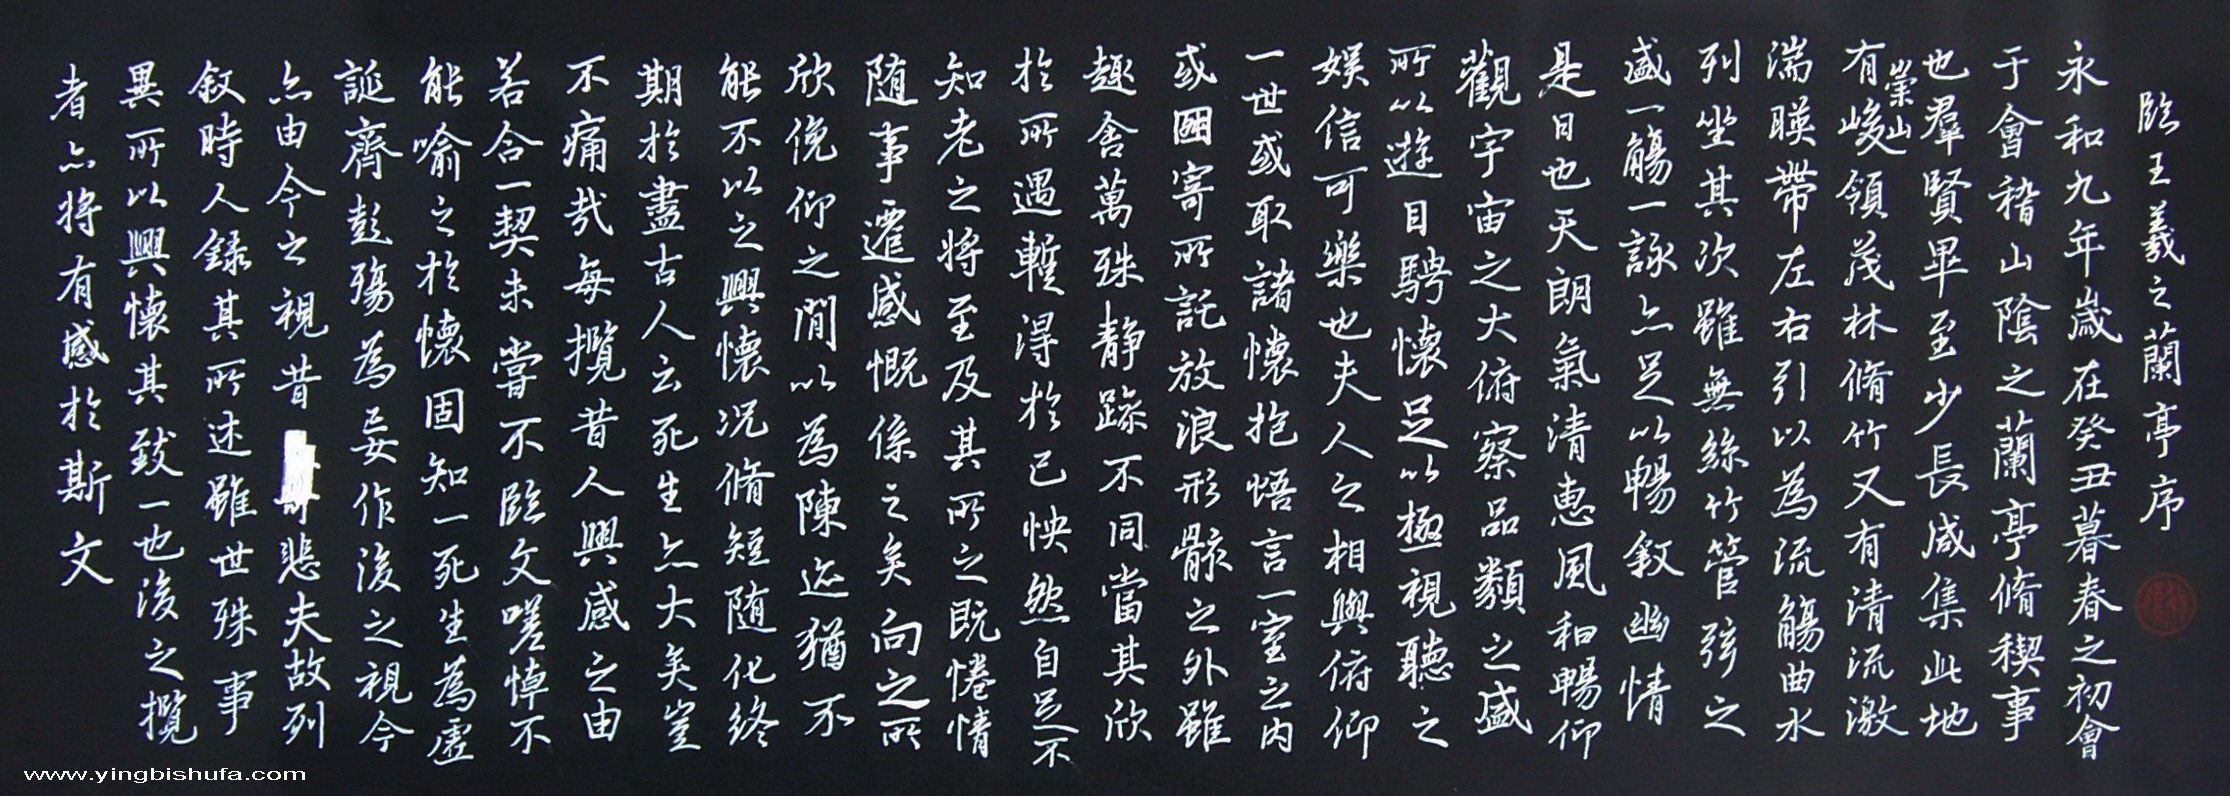 臨王羲之蘭亭序
永和九年歲在癸丑暮春之初會
于會稽山陰之蘭亭脩稧事
也羣賢畢至少長咸集此地
有崇山峻領茂林脩竹又有清流激
湍暎帶左右引以為流觴曲水
列坐其次雖無絲竹管弦之
盛一觴一詠亦足以暢敘幽情
是日也天朗氣清惠風和暢仰
觀宇宙之大俯察品類之盛
所以遊目騁懷足以極視聽之
娛信可樂也夫人之相與俯仰
一世或取諸懷抱悟言一室之內
或因寄所託放浪形骸之外雖
趣舍萬殊靜躁不同當其欣
於所遇暫得於己怏然自足不
知老之將至及其所之既惓情
隨事遷感慨係之矣向之所
欣俛仰之間以為陳迹猶不
能不以之興懷況脩短隨化終
期於盡古人云死生亦大矣豈
不痛哉每攬昔人興感之由
若合一契未嘗不臨文嗟悼不
能喻之於懷固知一死生為虛
誕齊彭殤為妄作後之視今
亦由今之視昔悲夫故列
敘時人錄其所述雖世殊事
異所以興懷其致一也後之攬
者亦將有感於斯文
www.yingbishufa.com